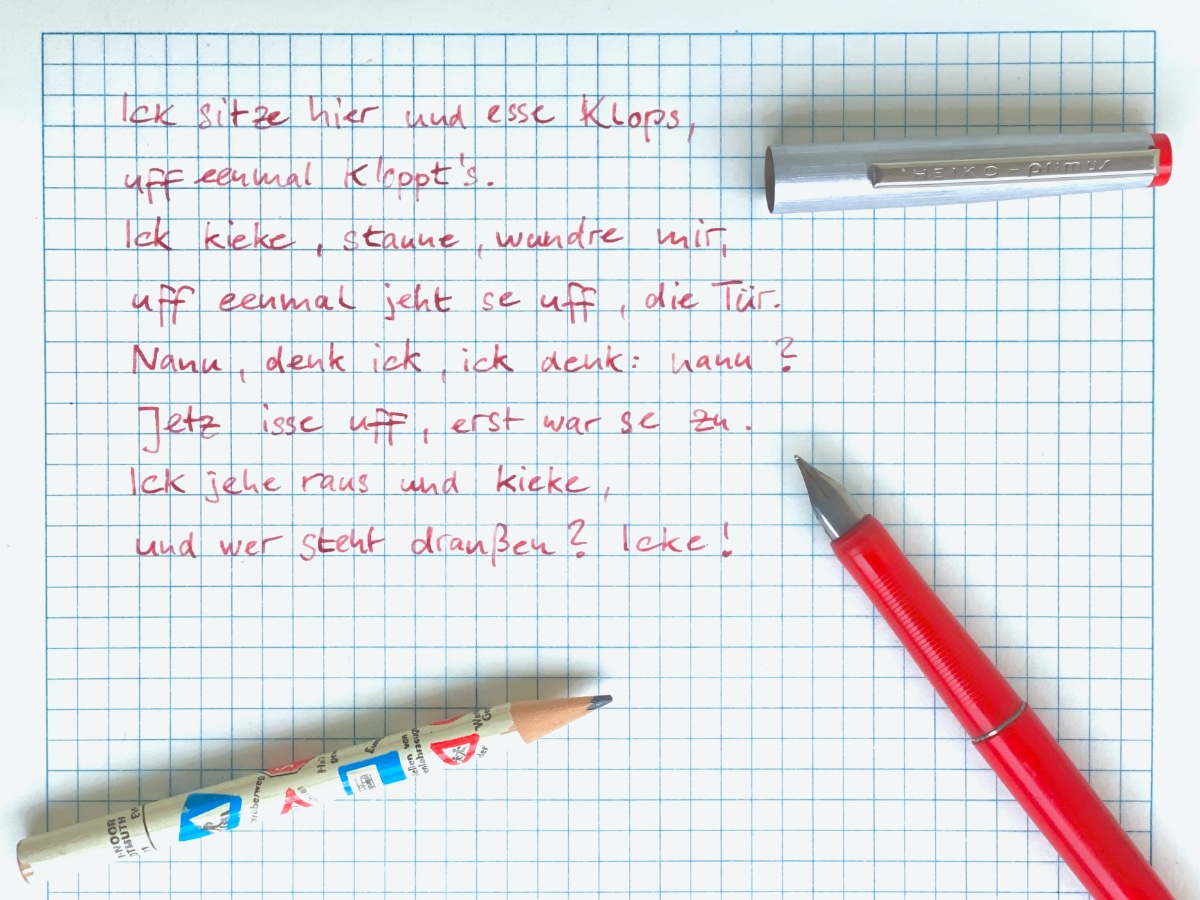 Ick sitze hier und esse Klops,
uff eenmal kloppt's.
Ick kieke, staune, wundre mir,
uff eenmal jeht se uff, die Tür.
Nanu, denk ick, ick denk: nanu?
Jetz isse uff, erst war se zu.
Ick jehe raus und kieke,
und wer steht draußen? Icke!
HEIKO-primus